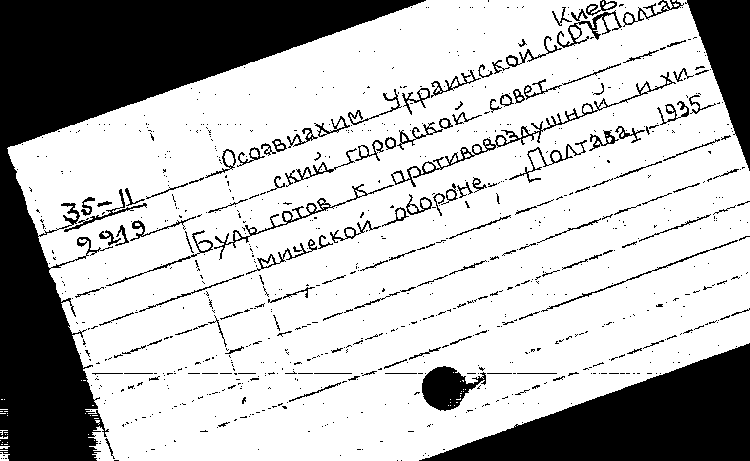 Киев.
Осоавиахим Украинской ССР. Полтав
ский городской совет.
Будь готов к противовоздушной и хи=
мической обороне. [Полтава, 1935
35-11
2219